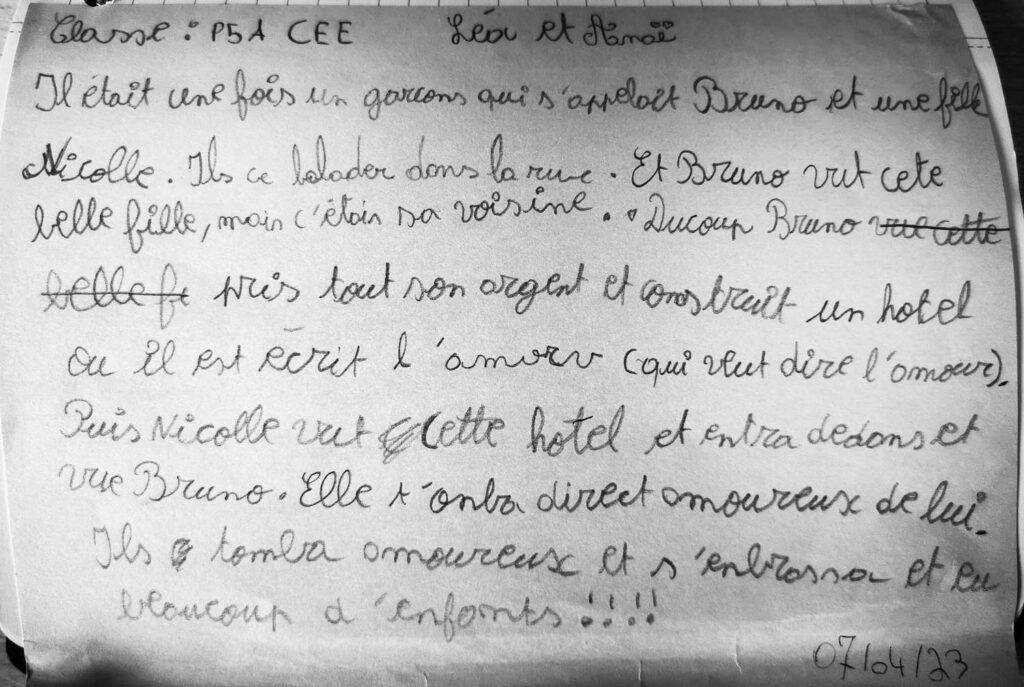 Classe : P5A CEE Léa et Anaë
Il était une fois un garcons qui s'appelait Bruno et une fille
Nicolle. Ils ce balader dans la rue. Et Bruno vut cete
belle fille, mais c'étais sa voisine. Ducoup Bruno vue cette
belle f pris tout son argent et construit un hotel
ou il est écrit l'amorv (qui veut dire l'amour).
Puis Nicolle vut Cette hotel et entra dedans et
vue Bruno. Elle t'onba direct amoureux de lui.
Ils tomba amoureux et s'enbrassa et eu
beaucoup d'enfants !!!!
07/04/23